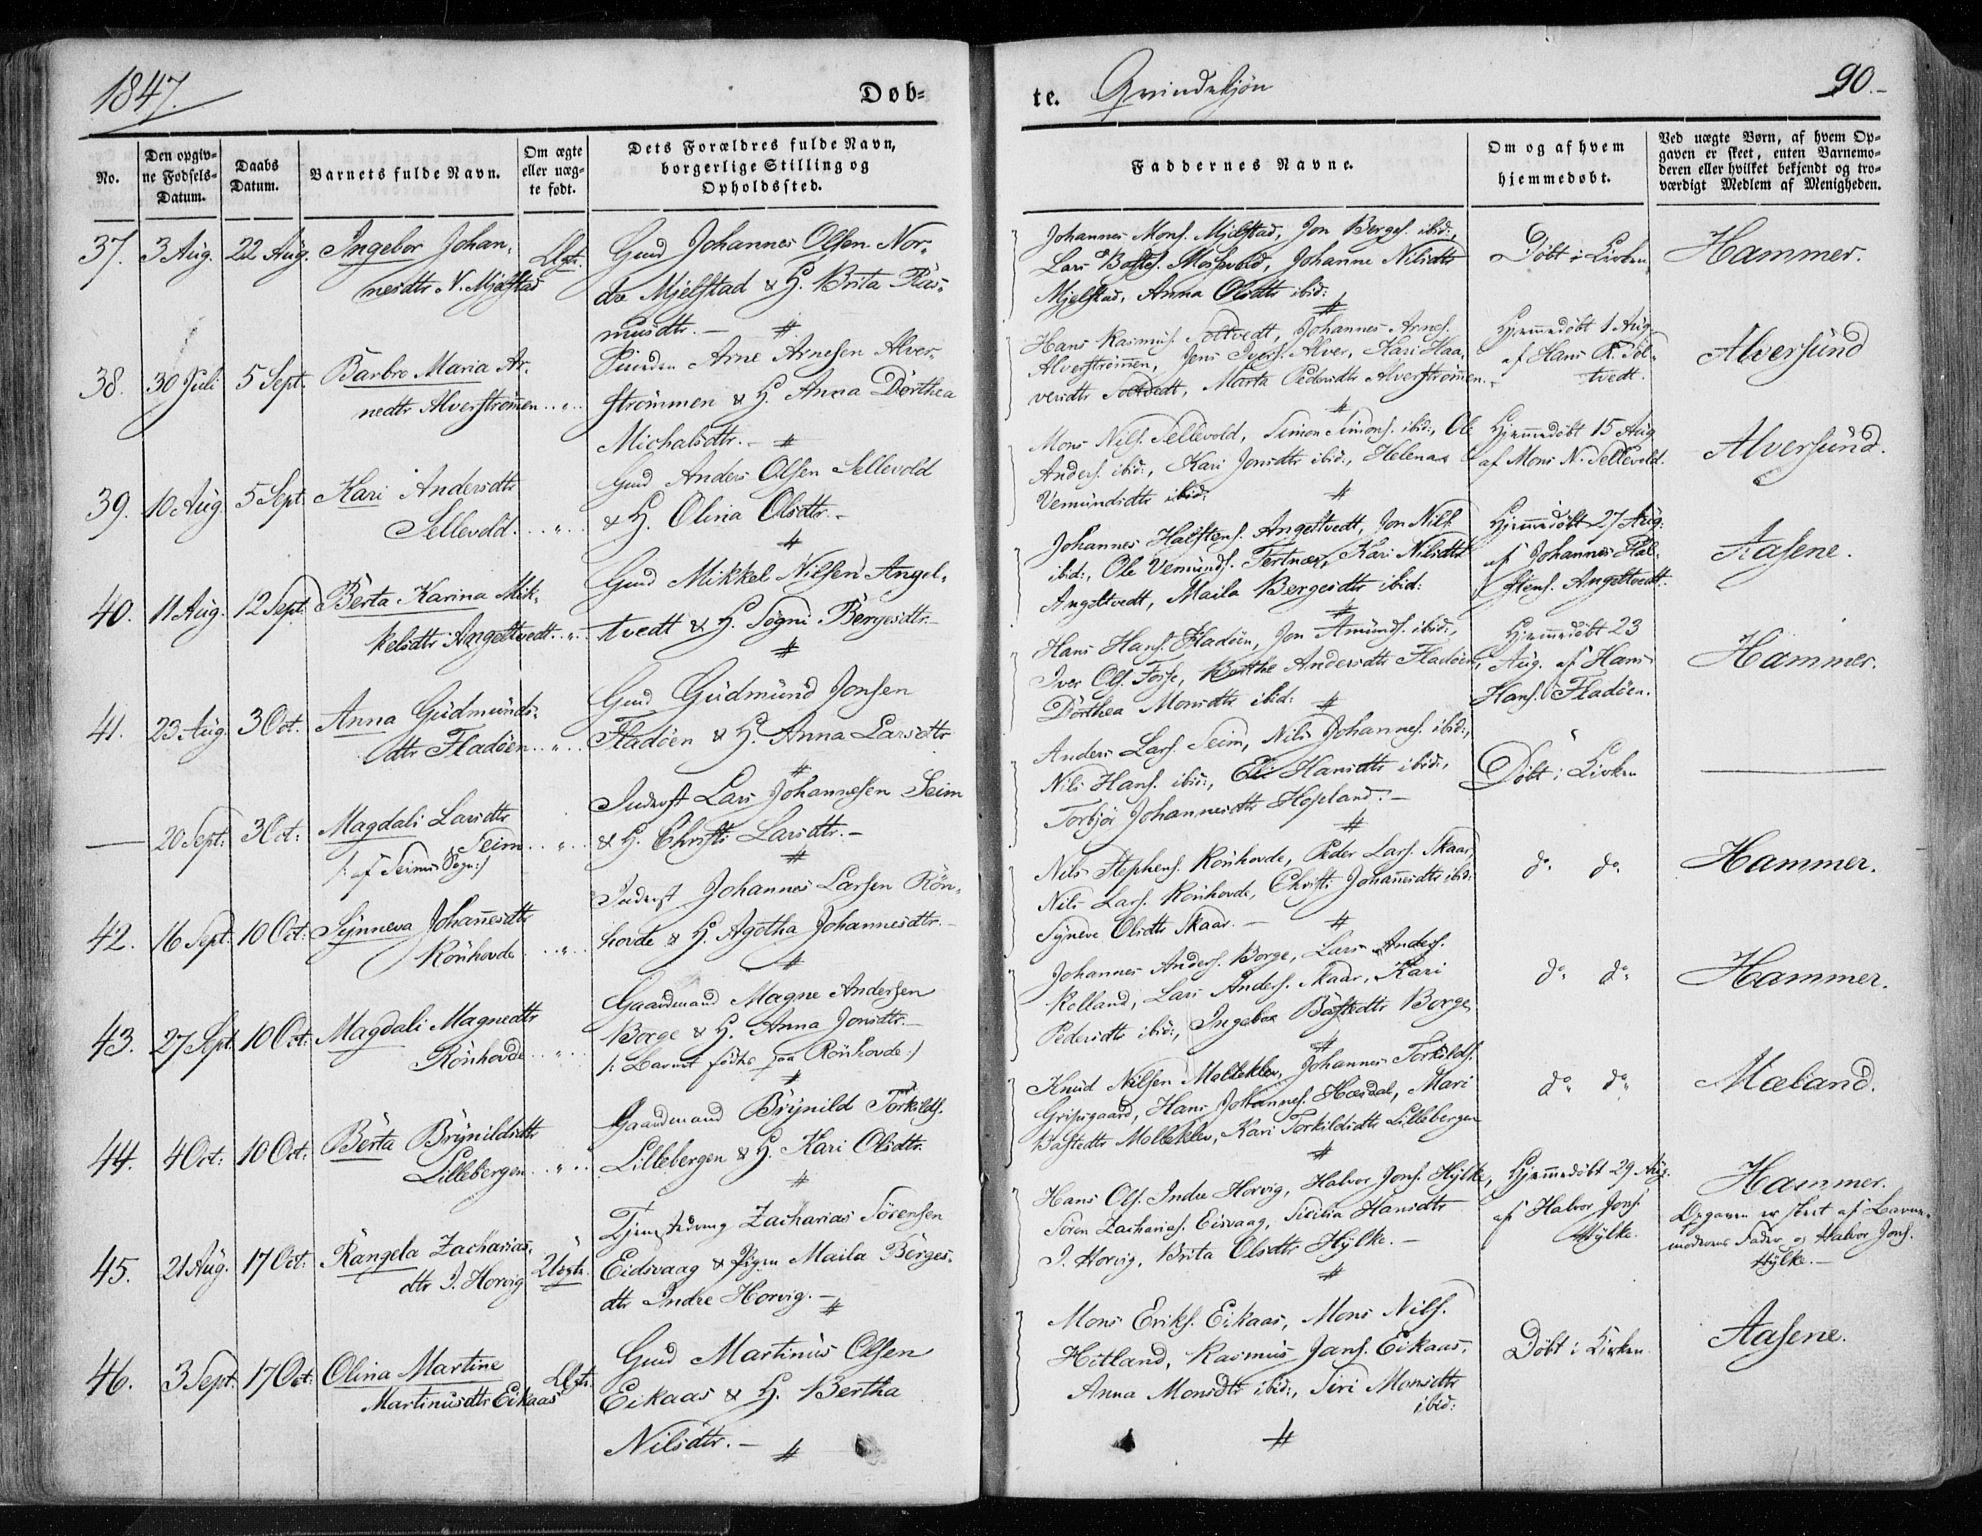 1847.
Døb-
te. Qvindekjøn
90.-
No.
Den opgiv-
ne Fødsels-
Datum.
Daabs
Datum.
Barnets fulde Navn.
Om ægte
eller uæg-
te født.
Dets Forældres fulde Navn,
borgerlige Stilling og
Opholdssted.
Faddernes Navne.
Om og af hvem
hjemmedøbt.
Ved uægte Børn, af hvem Op-
gaven er skeet, enten Barnemo-
deren eller hvilket bekjendt og tro-
værdigt Medlem af Menigheden.
37. 3 Aug. 22 Aug. Ingebor Johan-
nesdtr N. Mjelstad
Ægte.
Gmd Johannes Olsen Nor-
dre Mjelstad & H. Brita Ras-
musdtr. -
Johannes Mons. Mjelstad, Jon Berges. ibid:,
Lars Mosevold, Johanne Nilsdtr
Mjelstad, Anna Olsdtr ibid:
Døbt i Kirken.
Hammer.
38. 30 Juli 5 Sept. Barbro Maria Ar-
nedtr Alverstrømmen .. " ..
Arne Arnesen Alver-
strømmen & H. Anna Dorthea
Michalsdtr. -
Hans Rasmus. Toltvedt, Johannes Arnes.
Alverstrømmen, Jens Ivers. Alver, Kari Haa-
versdtr Toltvedt, Marta Pedersdtr Alverstrømmen.
Hjemmedøbt 1 Aug.
af Hans R. Tol-
tvedt.
Alversund
39. 10 Aug. 5 Sept. Kari Andersdtr
Sellevold. .. " ..
Gmd Anders Olsen Sellevold
& H. Olina Olsdtr. -
Mons Nils. Sellevold, Simon Simons. ibid:, Ole
Anders. ibid:, Kari Jonsdtr ibid:, Helena
Vemundsdtr ibid:
Hjemmedøbt 15 Aug.
af Mons N. Sellevold.
Alversund.
40. 11 Aug. 12 Sept. Berta Karina Mik-
kelsdtr Angeltvedt .. " ..
Gmd Mikkel Nilsen Angel-
tvedt & H. Søgni Børgesdtr. -
Johannes Halstens. Angeltvedt, Jon Nils.
ibid:, Ole Vemunds. Tertnæs, Kari Nilsdtr
Angeltvedt, Maila Bergesdtr ibid:
Hjemmedøbt 27 Aug.
af Johannes Hal-
stens. Angeltvedt.
Aasene.
41. 23 Aug. 3 Oct. Anna Gudmunds-
dtr Fladøen .. " ..
Gmd Gudmund Jonsen
Fladøen & H. Anna Larsdtr
Hans Hans. Fladøen, Jon Amunds. ibid:,
Iver Ols. Fosse, Berthe Andersdtr Fladøen,
Dorthea Monsdtr ibid:
Hjemmedøbt 23
Aug. af Hans
Hans. Fladøen.
Hammer.
20 Sept: 3 Oct: Magdali Larsdtr
Seim .. " ..
/: af Seims Sogn:/
Inderst Lars Johannesen Seim
& H. Christi Larsdtr. -
Anders Lars. Seim, Nils Johannes. ibid:,
Nils Hans. ibid:, Eli Hansdtr ibid:,
Torbjør Johannesdtr Hopland. -
Døbt i Kirken
42. 16 Sept. 10 Oct: Synneva Johannesdtr
Rønhovde .. " ..
Inderst Johannes Larsen Røn-
hovde & H. Agotha Johannesdtr. -
Nils Stephens. Rønhovde, Peder Lars. Skaar,
Nils Lars. Rønhovde, Christi Johannesdtr ibid:
Syneve Olsdtr Skaar. -
do. do.
Hammer.
43. 27 Sept. 10 Oct: Magdali Magnedtr
Rønhovde .. " ..
Gaardmand Magne Andersen
Borge & H. Anna Jonsdtr. -
/: Barnet fødtes paa Rønhovde:/
Johannes Anders. Borge, Lars Anders.
Rolland, Lars Anders. Skaar, Kari
Pedersdtr ibid:, Ingebor Børstedtr Borge
do. do.
Hammer.
44. 4 Oct: 10 Oct: Berta Brynildsdtr
Lillebergen .. " ..
Gaardmand Brynild Torkilds.
Lillebergen & H. Kari Olsdtr.
Knud Nilsen Mølleklev, Johannes Torkilds.
Gripsgaard, Hans Johannes. Hordal, Mari
Møllleklev, Kari Torkildsdtr Lillebergen
do. do.
Mæland.
45. 21 Aug. 17 Oct: Rangela Zacharias-
dtr I. Horvig
Uægte.
Tjenestedreng Zacharias Sörensen
Eidsvaag & Pigen Maila Børges-
dtr Indre Horvig. -
Hans Ols. Indre Horvig, Halvor Jons. Hylke,
Sören Zacharias. Eisvaag, Sicilia Hansdtr
I. Horvig, Brita Olsdtr Hylke. -
Hjemmedøbt 29 Aug.
af Halvor Jons.
Hylke.
Hammer.
Opgaven er skeet af Barne-
moderens Fader og Halvor Jons.
Hylke. -
46. 3 Sept. 17 Oct: Olina Martine
Martinusdtr Eikaas
Ægte.
Gmd Martinus Olsen
Eikaas & H. Bertha
Nilsdtr. -
Mons Eriks. Eikaas, Mons Nils.
Hitland, Rasmus Jans. Eikaas,
Anna Monsdtr ibid:, Siri Monsdtr
ibid:
Døbt i Kirken.
Aasene.